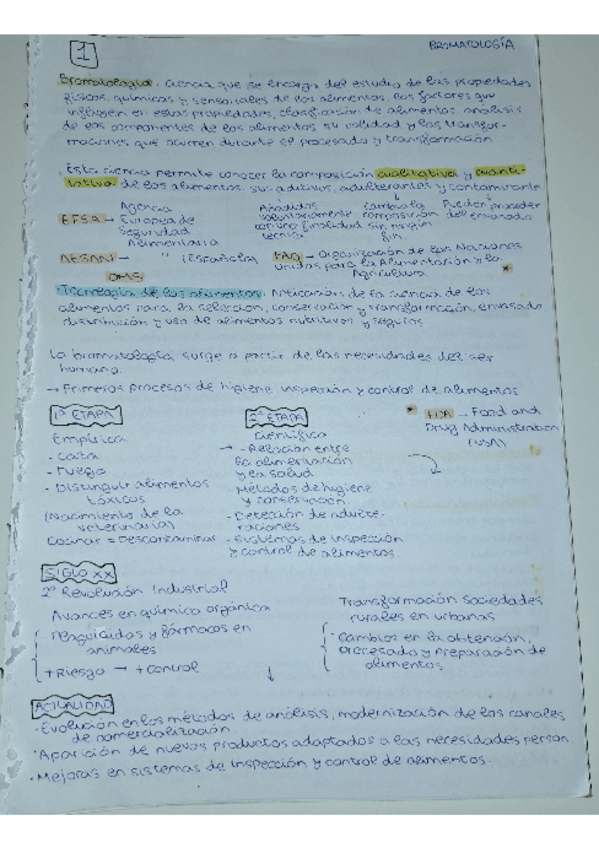 1
BROMATOLOGÍA
Bromatología: ciencia que se encarga del estudio de las propiedades
físicas, químicas y sensoriales de los alimentos, los factores que
influyen en estas propiedades, clasificación de alimentos, análisis
de los componentes de los alimentos, su calidad y las transfor-
maciones que ocurren durante el procesado y transformación
Esta ciencia permite conocer la composición cualitativa y cuanti-
tativa de los alimentos, sus aditivos, adulterantes y contaminante
EFSA - Agencia
Europea de
Seguridad
Alimentaria
Añadidos
voluntariamente
con una finalidad
técnica
Cambia la
composición
sin ningún
fin
Pueden proceder
del envasado
AESAN - " (Española)
FAO - Organización de las Naciones
Unidas para la Alimentación y la
Agricultura *
OMS
Tecnología de los alimentos: Aplicación de la ciencia de los
alimentos para la selección, conservación y transformación, envasado,
distribución y uso de alimentos nutritivos y seguros
La bromatología surge a partir de las necesidades del ser
humano.
→ Primeros procesos de higiene, inspección y control de alimentos
1ª ETAPA
Empírica
- Caza
- Fuego
- Distinguir alimentos
tóxicos
(Nacimiento de la
veterinaria)
Cocinar = Descontaminar
2ª ETAPA
Científica
→ - Relación entre
la alimentación
y la salud
- Métodos de higiene
y conservación
- Detección de adulte-
raciones
- Sistemas de inspección
y control de alimentos.
* FDA - Food and
Drug Administration
(USA)
SIGLO XX
2ª Revolución Industrial
Avances en química orgánica
- Plaguicidas y fármacos en
animales
+ Riesgo → + Control
Transformación sociedades
rurales en urbanas
- Cambios en la obtención,
procesado y preparación de
alimentos
ACTUALIDAD
- Evolución en los métodos de análisis, modernización de los canales
de comercialización
- Aparición de nuevos productos adaptados a las necesidades person.
- Mejoras en sistemas de inspección y control de alimentos